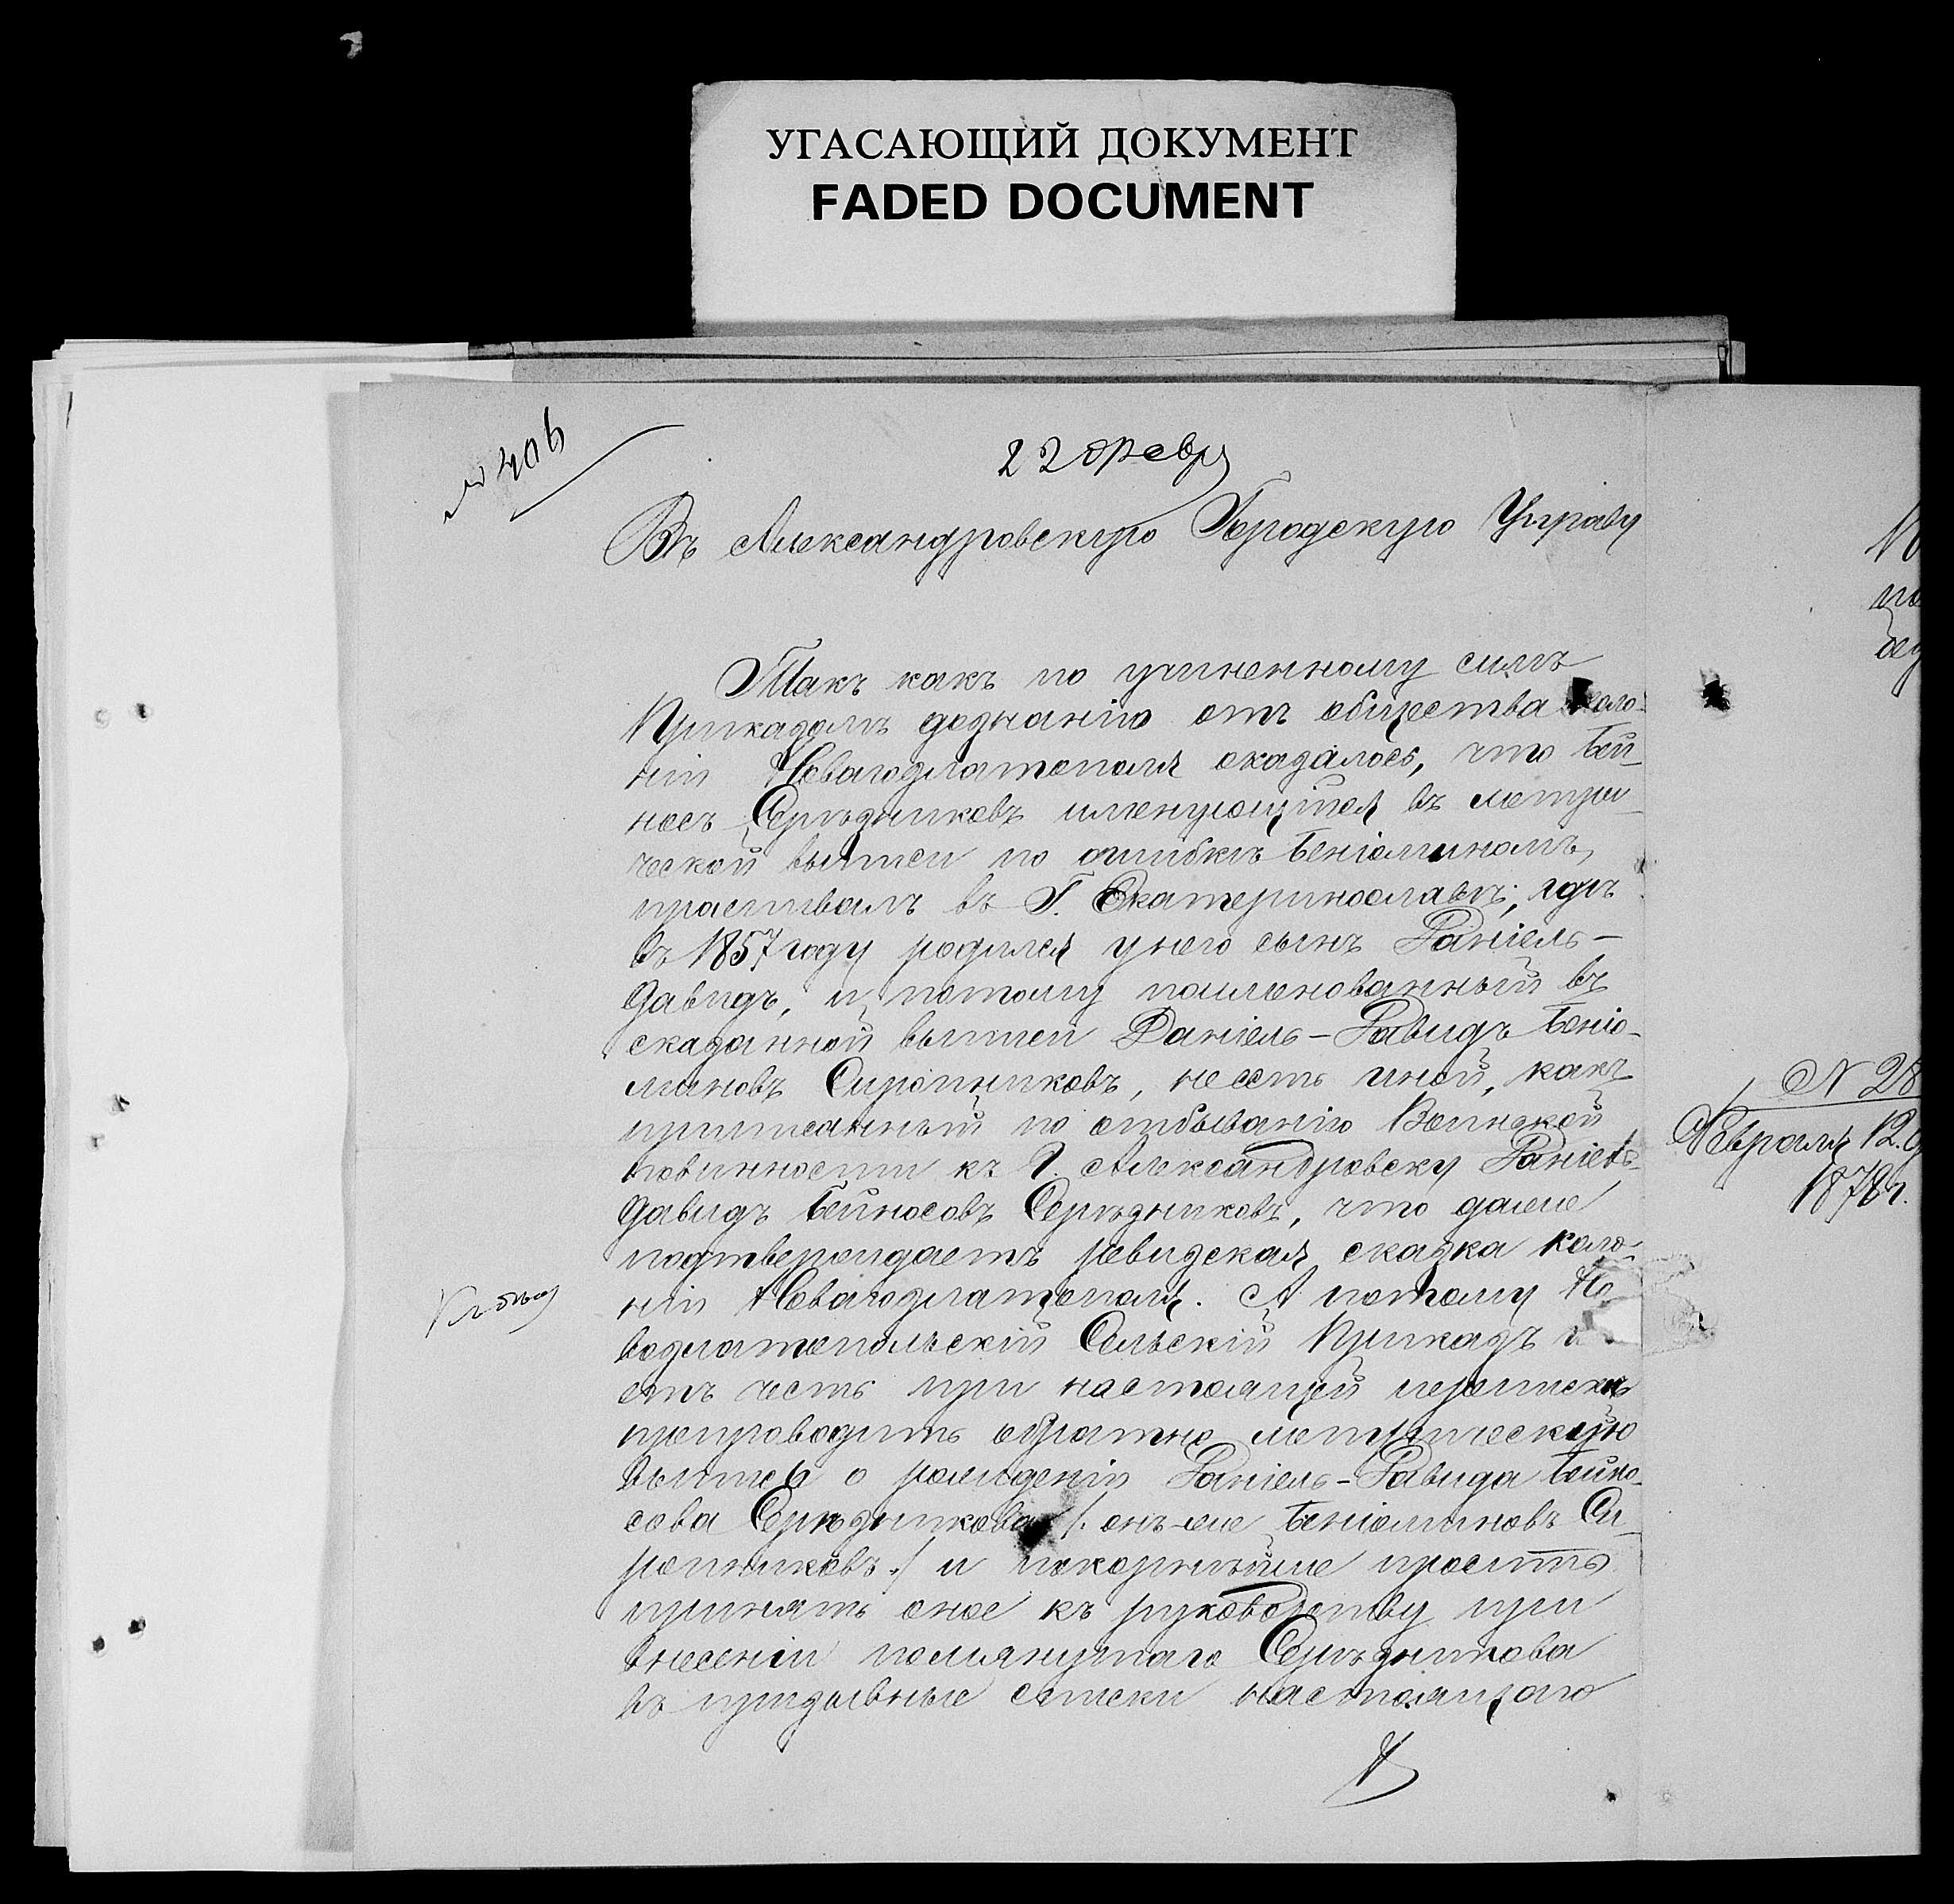 УГАСАЮЩИЙ ДОКУМЕНТ
FADED DOCUMENT
№ 406
22 февр
Въ Александровскую Городскую Управу
Такъ какъ по учиненному симъ
Приказомъ дознанію отъ общества коло-
ніи Новагозлатополя оказалось, что Бей-
носъ Серѣзниковъ именующійся въ метри-
ческой выписи по ошибкѣ Беніоминомъ,
проживалъ въ Г. Екатеринославѣ, гдѣ
въ 1857 году родился у него сынъ Даніель-
Давидъ, и потому поименованный въ
сказанной выписи Даніель-Давидъ Беніо-
миновъ Сиропниковъ, не есть иной, какъ
приписанный по отбыванію Воинской
повинности къ Г. Александровску Даніель-
Давидъ Бейносовъ Серѣзниковъ, что даже
подтверждаетъ ревизская сказка коло-
ніи Новагозлатополя. А потому Но
возлатопольскій Сельскій Приказъ
етъ честь при настоящей перепискѣ
препроводить обратно метрическую
выпись о рожденіи Даніель-Давида Бейно-
сова Серѣзникова /. онъ-же Беніоминовъ Си-
ропниковъ ./ и покорнѣйше проситъ
принять оное къ руководству при
внесеніи помянутаго Серѣзникова
въ призывные списки настоящаго
№ 28
Февраля 12
1878 г.